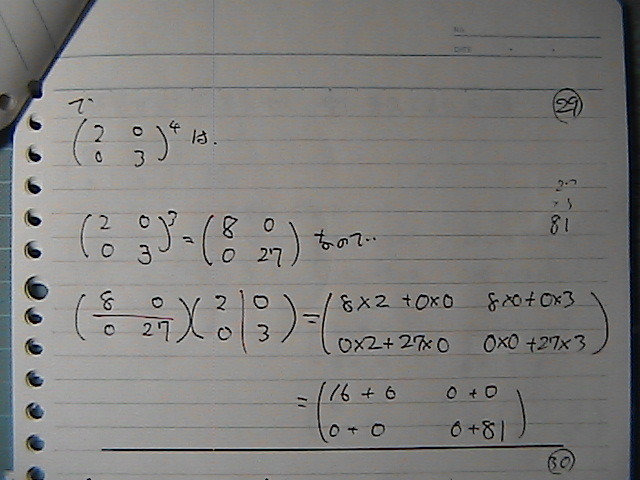 No.
DATE
で
(2 0
0 3)^4 は. ㉙
(2 0
0 3)^3 = (8 0
0 27) なので‥
27
×3
81
(8 0
0 27)(2 0
0 3) = (8×2+0×0 8×0+0×3
0×2+27×0 0×0+27×3)
= (16+0 0+0
0+0 0+81)
㉚